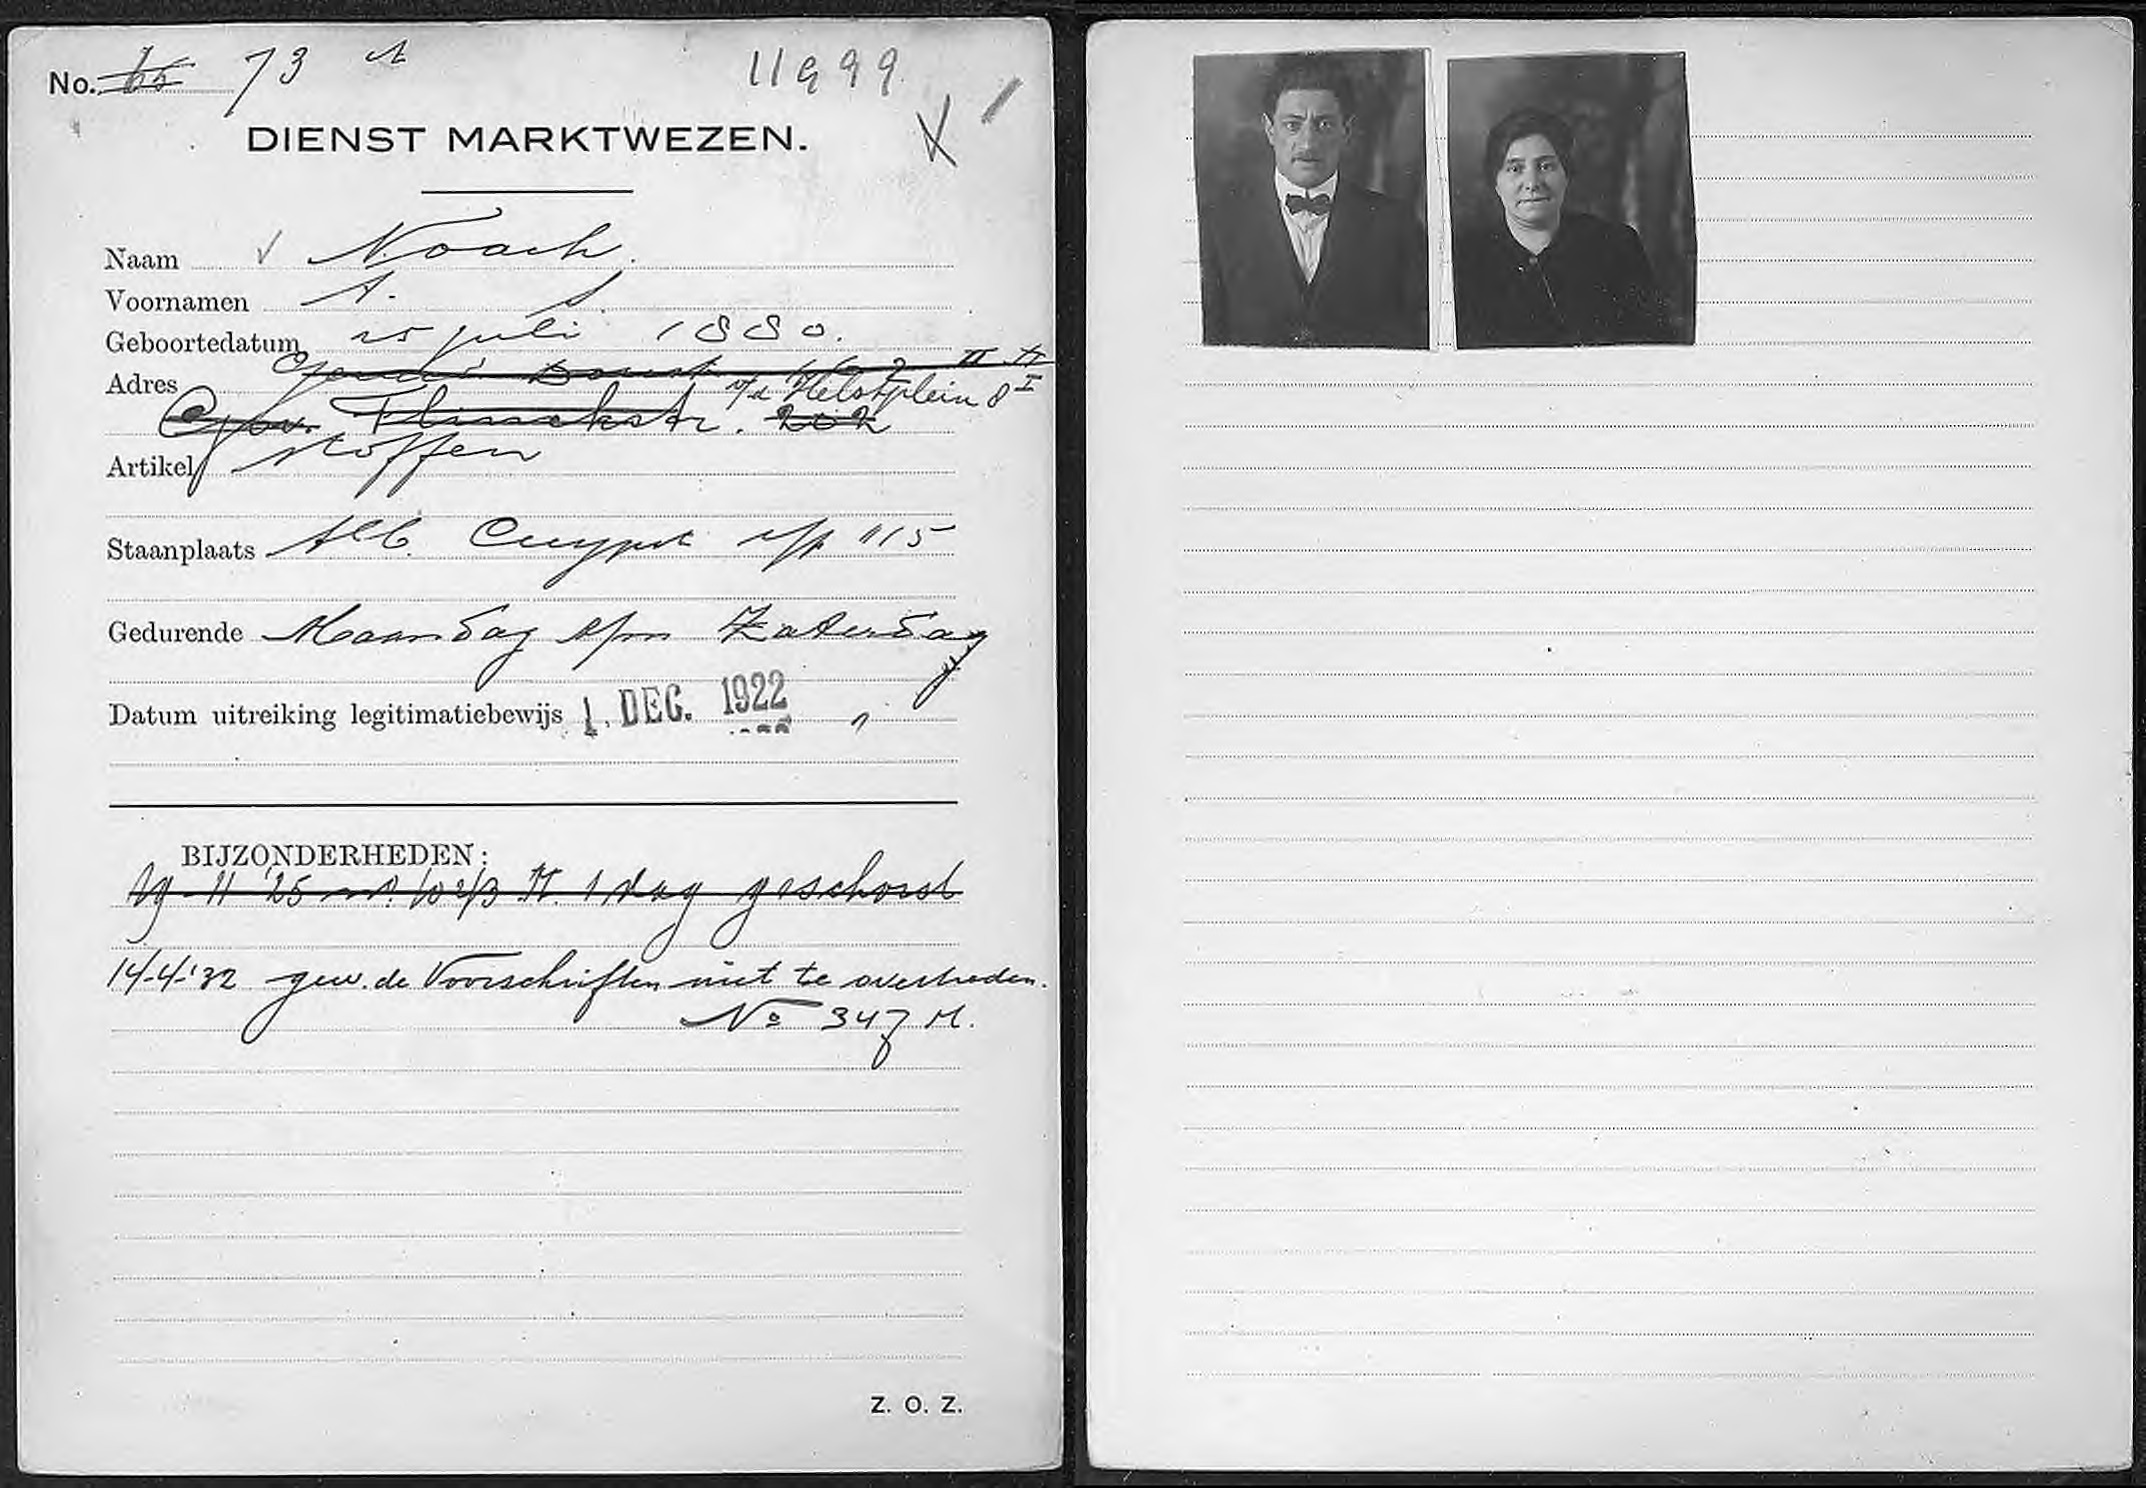 No. 73 A 11999
DIENST MARKTWEZEN.
Naam Noach.
Voornamen A. S.
Geboortedatum 25 juli 1880.
Adres Gerard Doust II
v/d Helstplein 8 I
Gov. Flinckstr. 202
Artikel stoffen
Staanplaats Alb. Cuypst 115
Gedurende Maandag t/m Zaterdag
Datum uitreiking legitimatiebewijs 1. DEC. 1922
BIJZONDERHEDEN:
19-11-'25 No. 1023 M. 1 dag geschorst
14-4-'32 gew. de Voorschriften niet te overtreden.
No 347 M.
Z. O. Z.